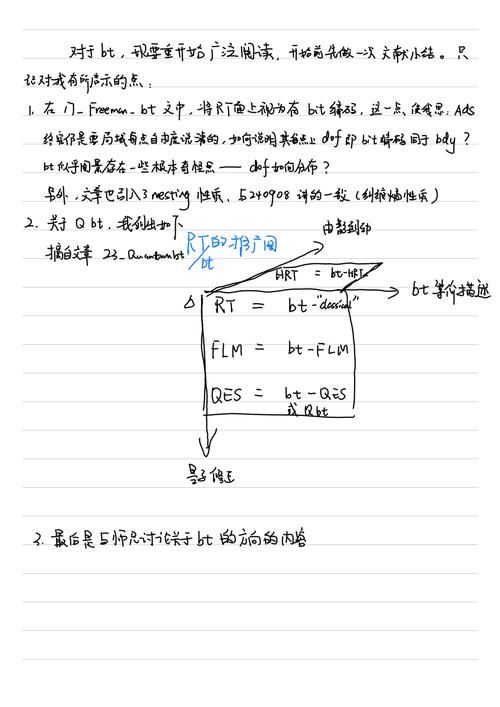 对于bt，我要重开始广泛阅读，开始前先做一次文献小结。只
记对我有所启示的点：
1. 在 17_Freeman_bt 文中，将RT面上视为有bit编码，这一点使我思：AdS
究竟仍是要局域有点自由度说清的，如何说明其每点上dof即bit编码同于bdy？
bt似乎图景存在一些根本奇怪点——dof如何分布？
另外，文章也引入了nesting性质，与240908讲的一致（纠缠熵性质）
2. 关于Qbt，我列出如下
摘自文章 23_Quantumbt
RT的推广图
/bt
由静到动
HRT = bt-HRT
RT = bt-"classical"
bt等价描述
FLM = bt-FLM
QES = bt-QES
或Qbt
量子修正
3. 最后是与师兄讨论关于bt的方向的内容